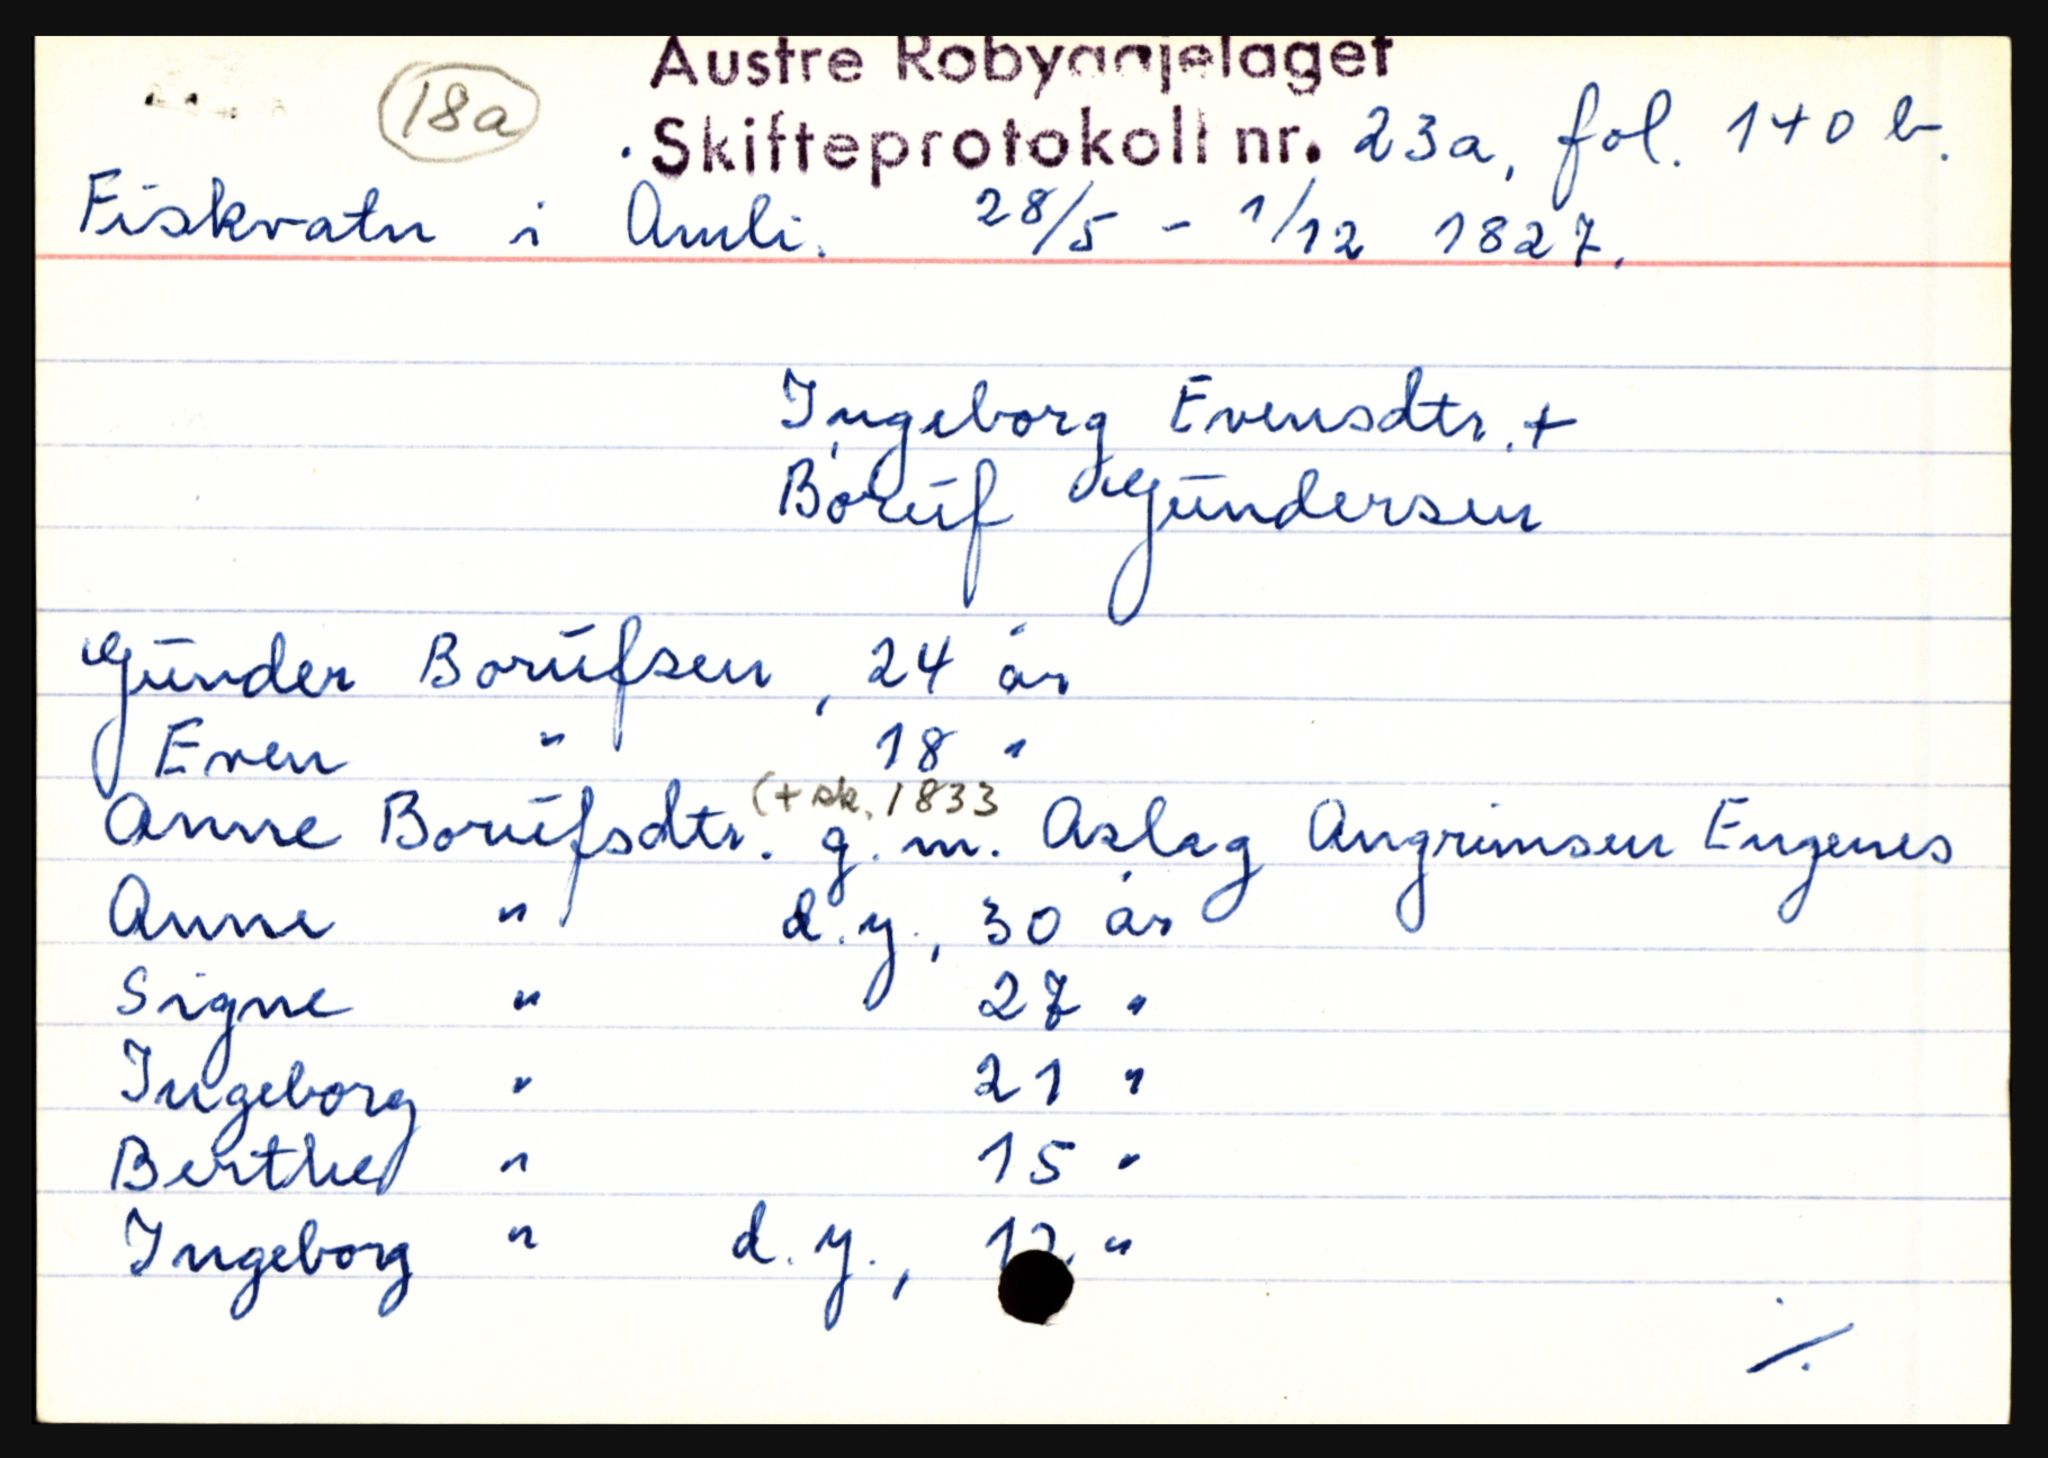 Austre Robyggjelaget
18a
Skifteprotokoll nr. 23a, fol. 140 b.
Fiskvatn i Amli. 28/5 - 1/12 1827.
Ingeborg Evensdtr. +
Boruf Gundersen
Gunder Borufsen, 24 år
Even " 18 "
(+ sk. 1833
Anne Borufsdtr. g. m. Aslag Angrimsen Engenes
Anne " d.y., 30 år
Signe " 27 "
Ingeborg " 21 "
Berthe " 15 "
Ingeborg " d. y., 12 "
./.